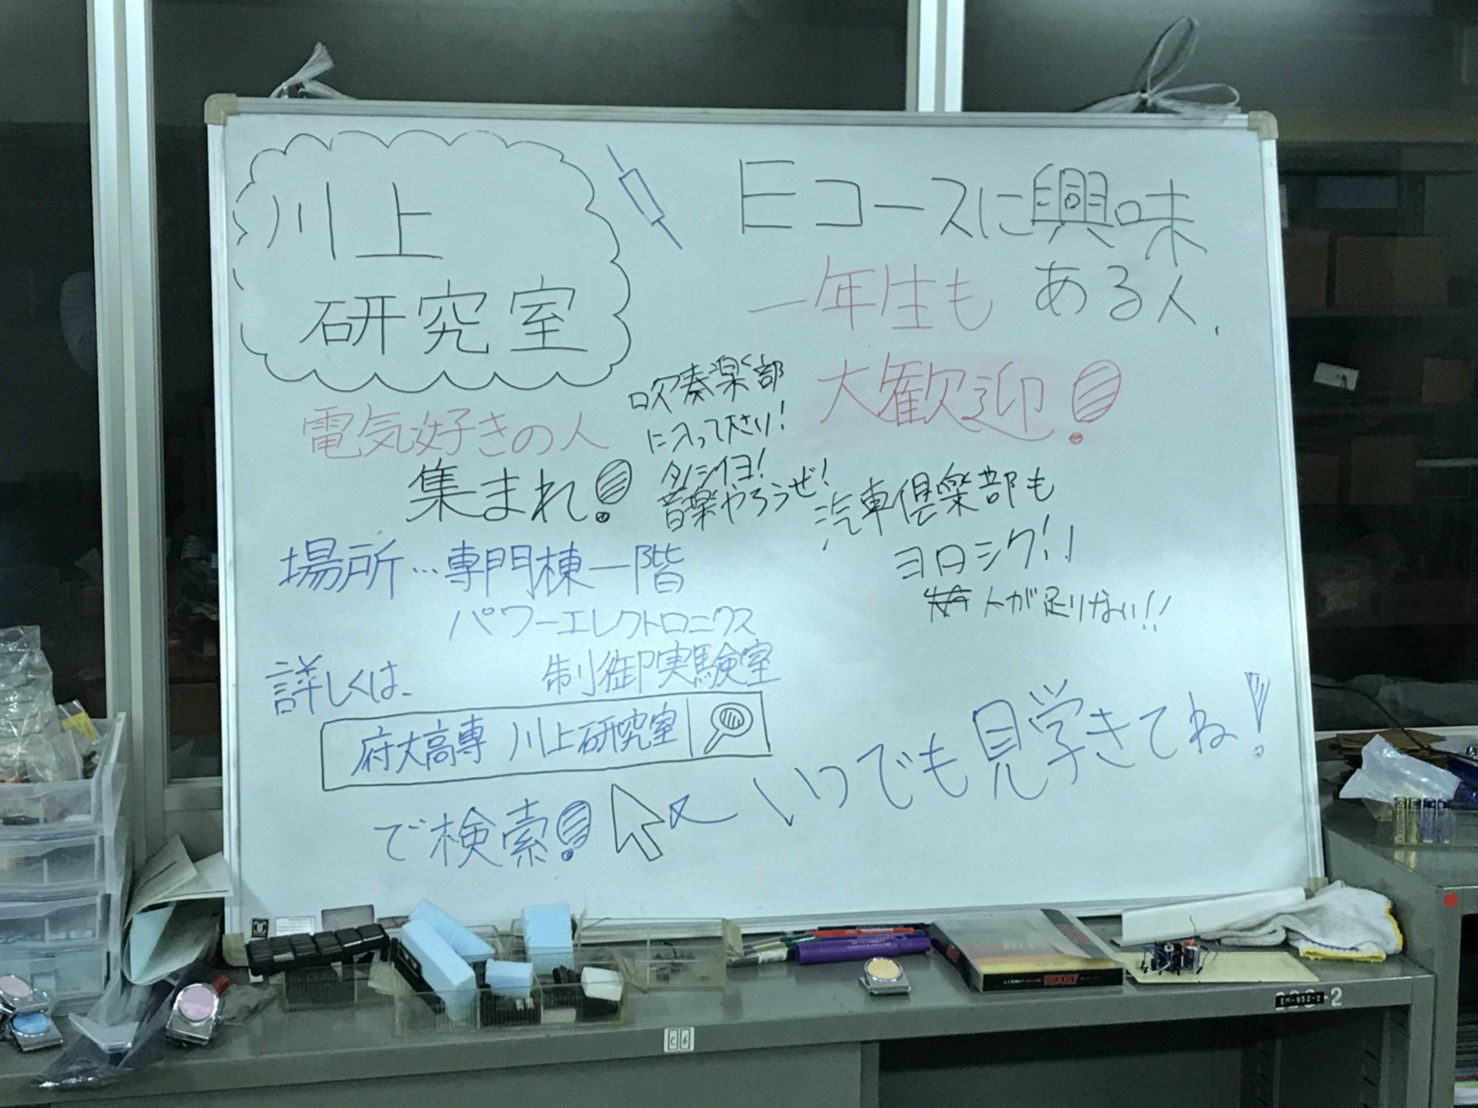 川上
研究室
Eコースに興味
ある人、
一年生も
大歓迎!
電気好きの人
集まれ!
吹奏楽部
に入って下さい!
タノシイヨ!
音楽やろうぜ!
汽車倶楽部も
ヨロシク!!
人が足りない!!
場所…専門棟一階
パワーエレクトロニクス
制御実験室
詳しくは、
府大高専 川上研究室
で検索!
いつでも見学きてね!